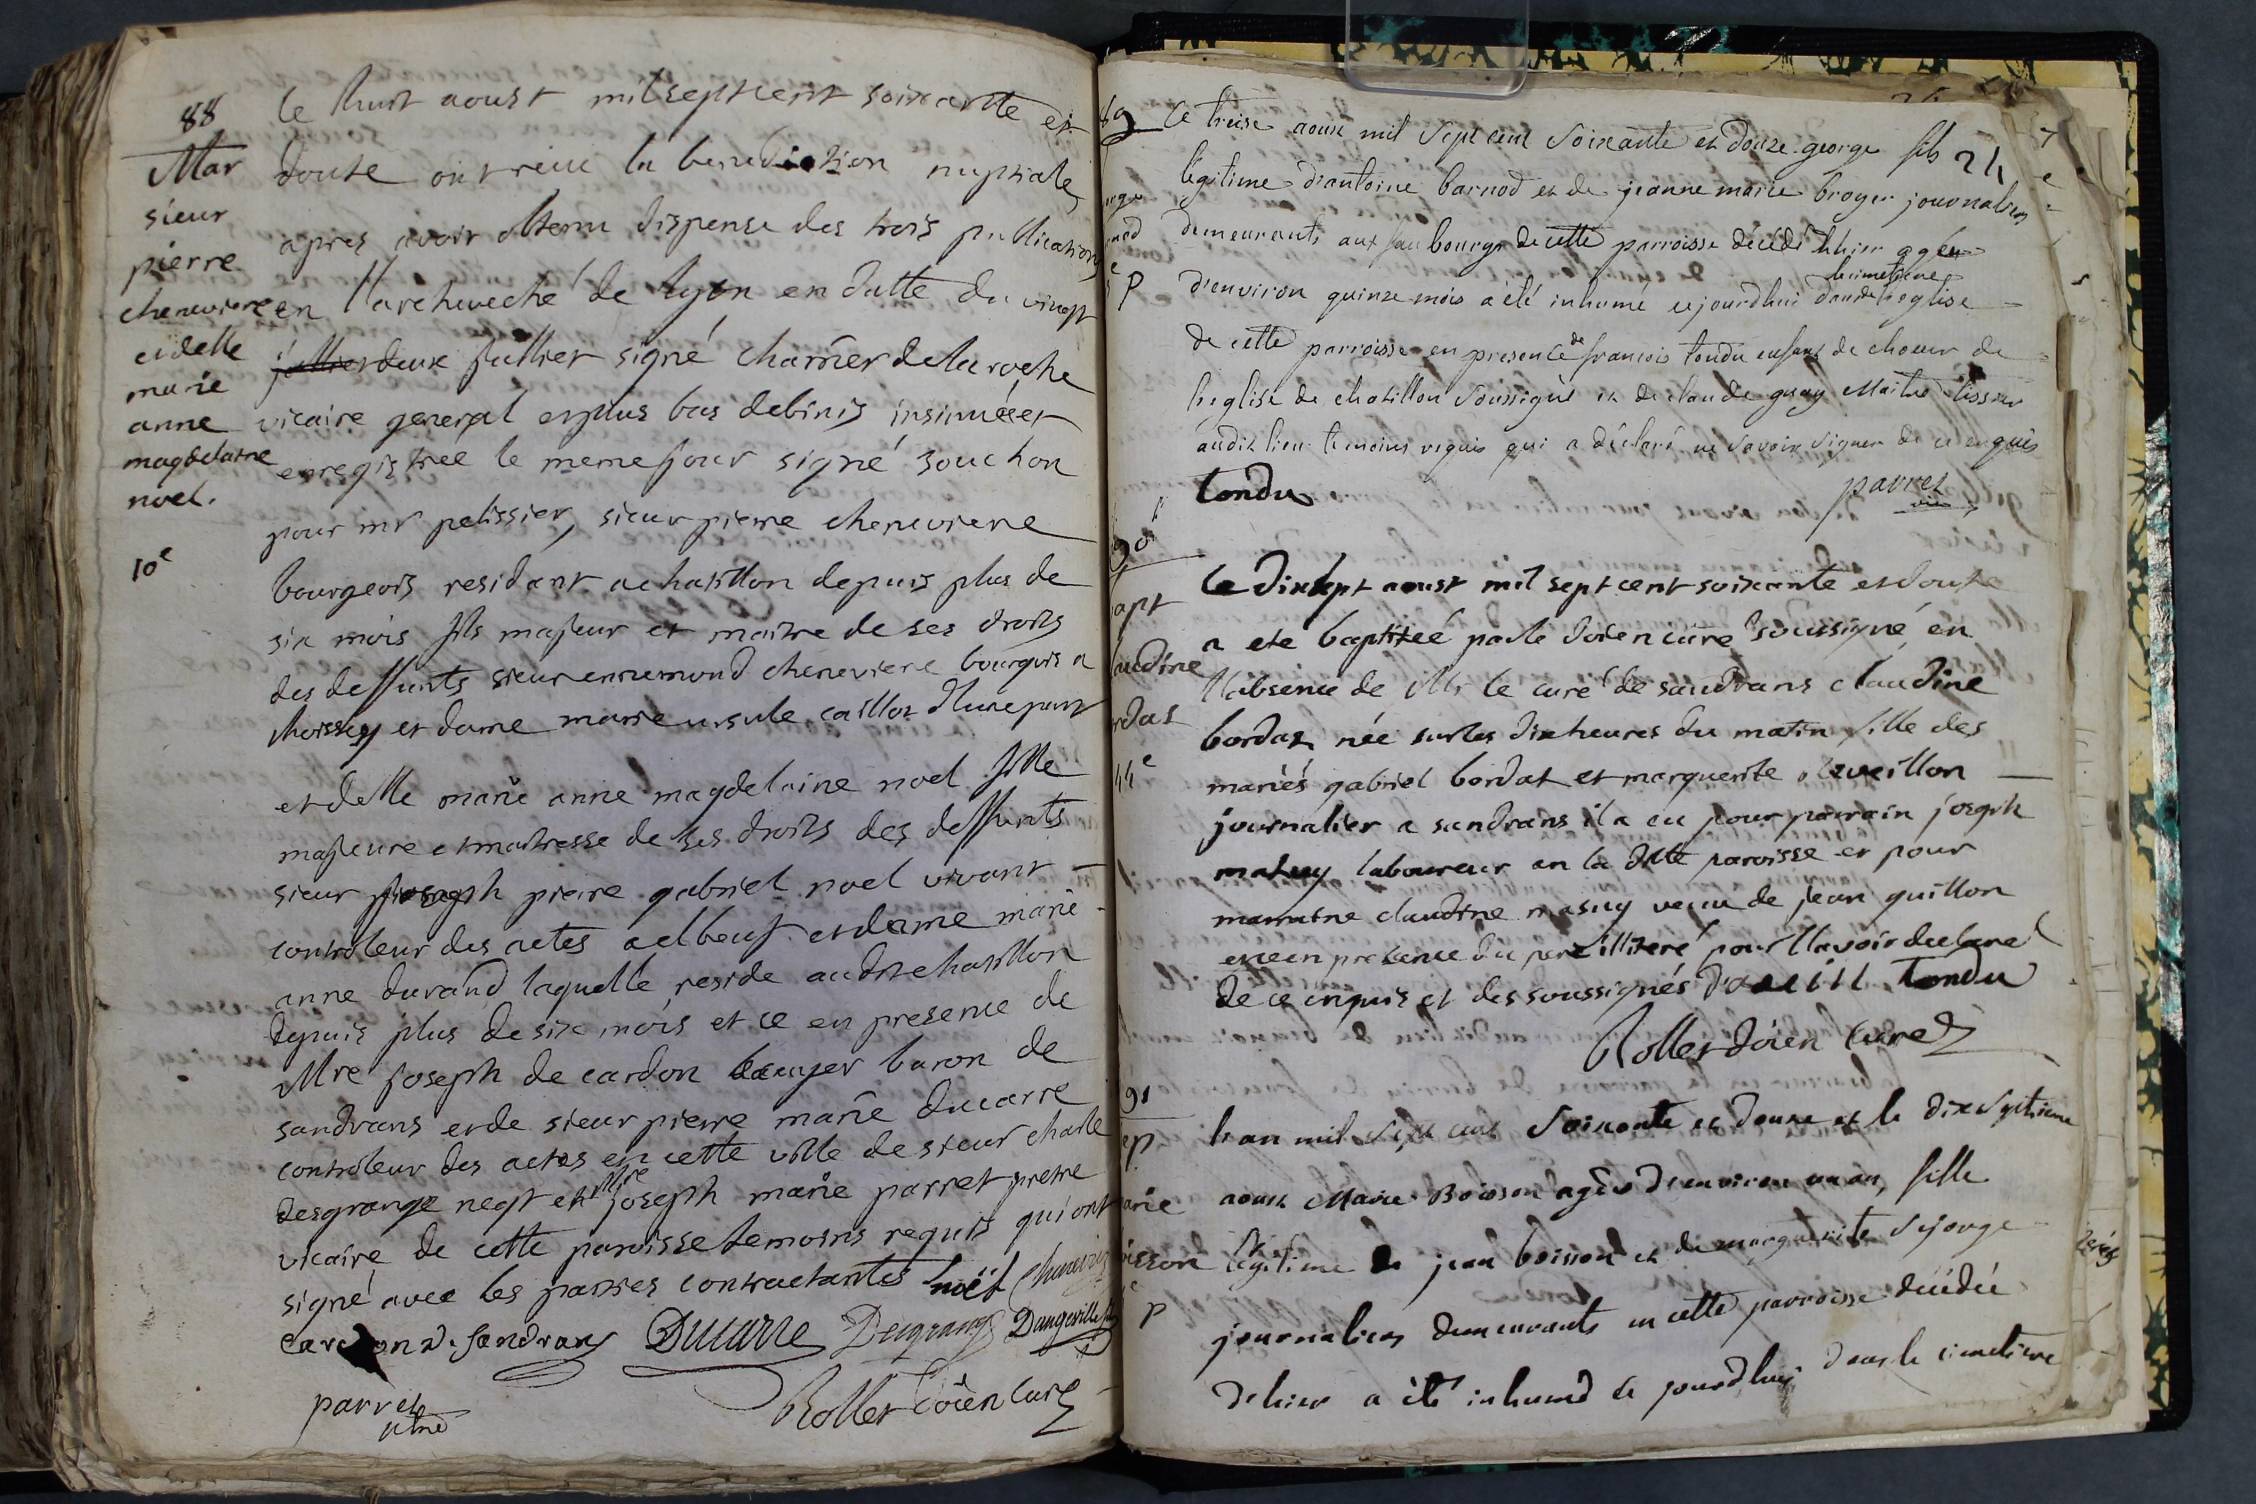 88
Mar
sieur
pierre
cheneviere
et delle
marie
anne
magdelaine
noel.
10e
le huit aoust mil sept cent soixante et
douze ont recu la benediction nuptiale
apres avoir obtenu dispense des trois publications
en l'archeveché de lyon en datte du vingt
et deux juillet signé charrier de la roche
vicaire general et plus bas debinis insinuée et
enregistree le meme jour signé souchon
pour mr pelissier, sieur pierre cheneviere
bourgeois residant a chatillon depuis plus de
six mois fils majeur et maitre de ses droits
des deffunts sieur ennemond cheneviere bourgeois a
thoissey et dame marie ursule caillot d'une part
et delle marie anne magdelaine noel fille
majeure et maitresse de ses droits des deffunts
sieur joseph pierre gabriel noel vivant
controleur des actes a elbeuf et dame marie
anne durand laquelle reside audit chatillon
depuis plus de six mois et ce en presence de
Mre joseph de cardon ecuyer baron de
sandrans et de sieur pierre marie ducarre
controleur des actes en cette ville de sieur charle
desgrange negt et Mre joseph marie parret pretre
vicaire de cette paroisse temoins requis qui ont
signé avec les parties contractantes noël
cardon d. sandrans Ducarre Desgrange Dangeville
parret
vicre
Rollet doien curé
89
P
Ce treise aoust mil sept cent soixante et douze george fils 24
légitime d'antoine barnod et de jeanne marie broyer journaliers
demeurants aux faubourgs de cette parroisse décédé hhier agé
d'environ quinze mois a été inhumé cejourdhui dans l'eglise
cimetiere
de cette parroisse en presence de francois tondu enfant de choeur de
l'eglise de chatillon soussigné et de claude guay Maitre tissier
audit lieu temoins requis qui a déclaré ne savoir signer de ce enquis
tondu
parret
vic
90
apt
audine
rdat
44e
Le dixsept aoust mil sept cent soixante et douze
a ete baptisée par le doien curé soussigné en
l'absence de Mr le curé de sandrans claudine
bordat née sur les dix heures du matin fille des
mariés gabriel bordat et marguerite leveillon
journalier a sandrans il a eu pour parrain joseph
mathuy laboureur en la ditte paroisse et pour
marraine claudine mathuy veuve de jean guillon
et ce en presence du pere illiteré pour l'avoir declaré
de ce enquis et des soussignés tondu
Rollet doien curé
91
ep
arie
oisson
P
l'an mil sept cent soixante et douze et le dix septieme
aoust Marie Boisson agée d'environ un an, fille
légitime de jean boisson et de marguerite sejorge
journaliers demeurants en cette parroisse décédée
d'hier a été inhumé ce jourdhuy dans le cimetiere